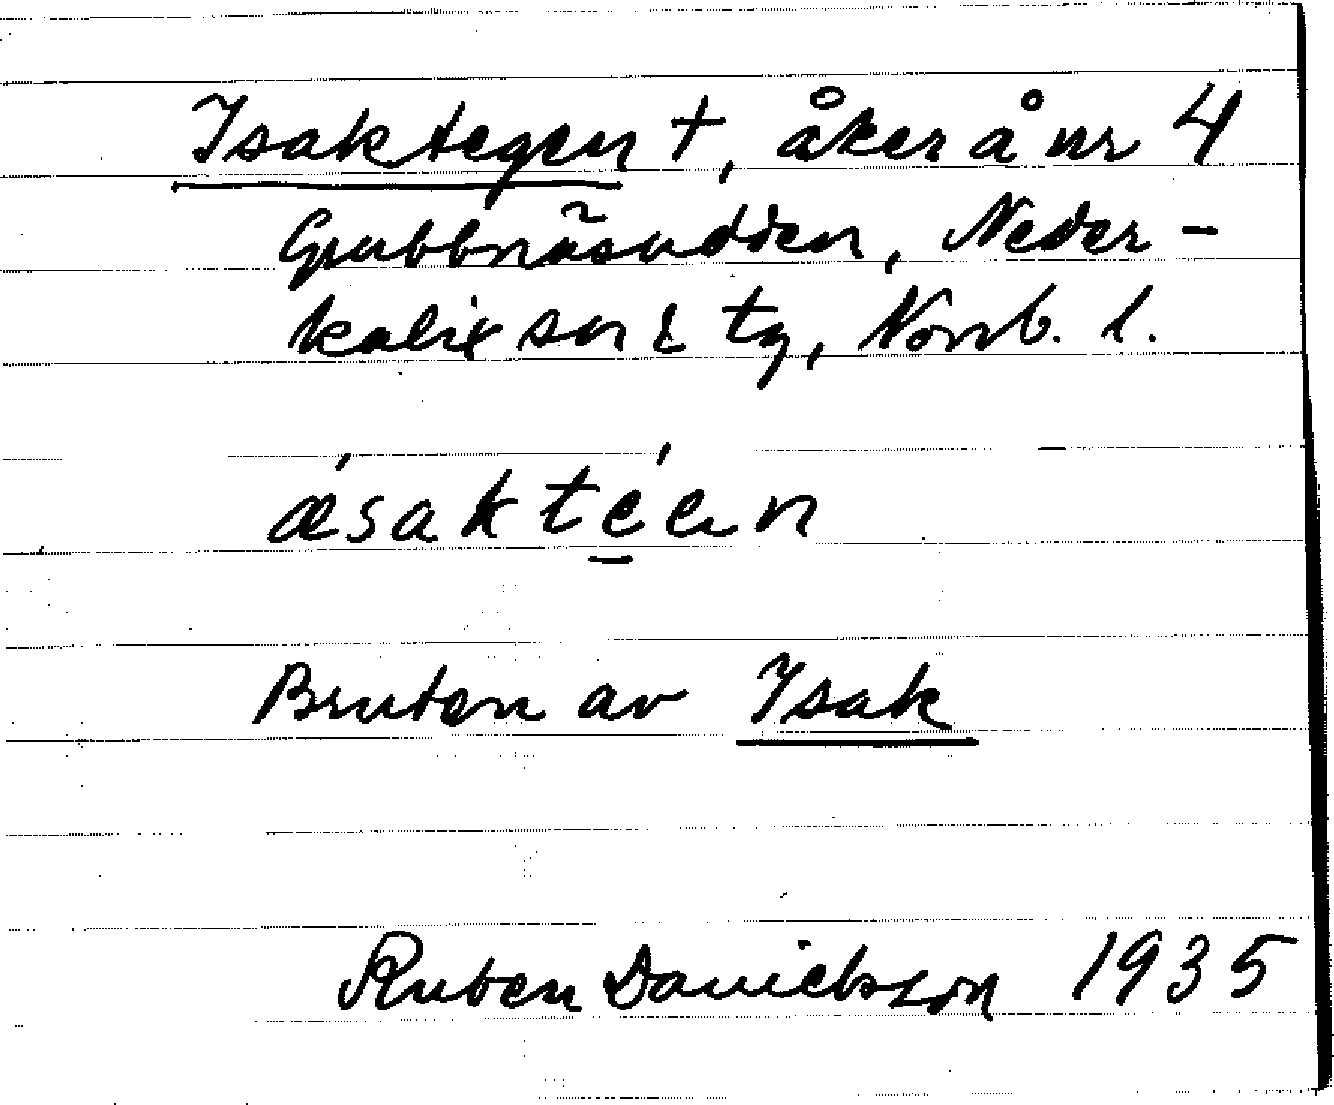 Isaktegen †, åker å nr 4
Grubbnäsudden, Neder-
kalix sn o tg, Norrb. l.
æ´sakte´en
Bruten av Isak
Ruben Danielsson 1935